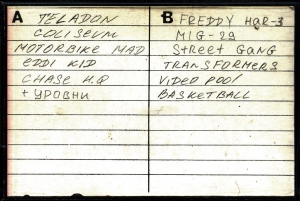 A TELADON
COLISEUM
MOTORBIKE MAD
EDDI KID
CHASE H.Q
+ УРОВНИ
B FREDDY HAR-3
MIG-29
STREET GANG
TRANSFORMERS
VIDEO POOL
BASKETBALL